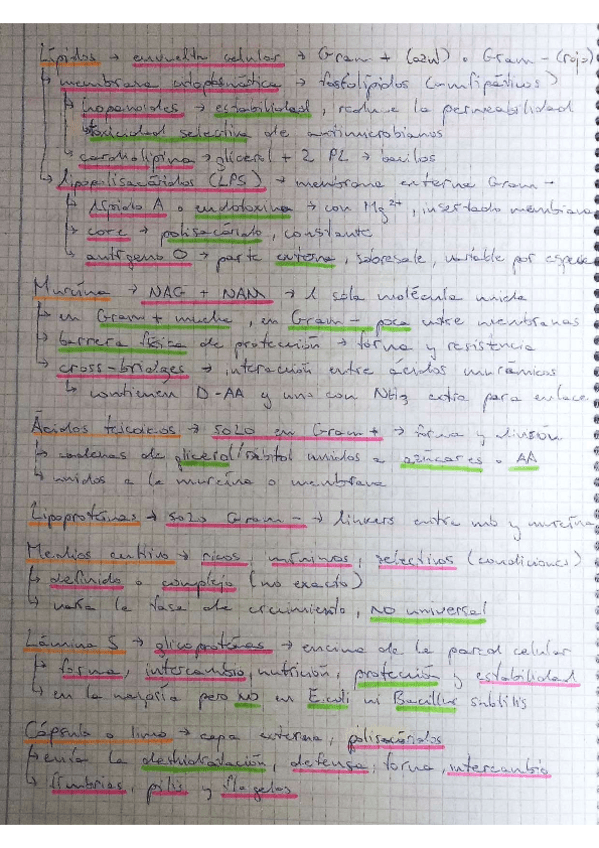 Lípidos → envuelta celular → Gram + (azul) o Gram - (rojo)
↳ membrana citoplasmática → fosfolípidos (amfipáticos)
↳ hopanoides → estabilidad, reduce la permeabilidad
toxicidad selectiva de antimicrobianos
↳ cardiolipina → glicerol + 2 PL → bacilos
↳ lipopolisacáridos (LPS) → membrana externa Gram -
↳ lípido A o endotoxina → con Mg²⁺, insertado membrana
↳ core → polisacárido, constante
↳ antígeno O → parte externa, sobresale, variable por especie
Mureína → NAG + NAM → 1 sola molécula unida
↳ en Gram + mucha, en Gram - poca entre membranas
↳ barrera física de protección → forma y resistencia
↳ cross-bridges → interacción entre ácidos murámicos
↳ contienen D-AA y uno con NH₃ extra para enlace
Ácidos teicoicos → solo en Gram + → forma y división
↳ cadenas de glicerol/ribitol unidos a azúcares o AA
↳ unidos a la mureína o membrana
Lipoproteínas → solo Gram - → linkers entre mb y mureína
Medios cultivo → ricos, mínimos, selectivos (condiciones)
↳ definido o complejo (no exacto)
↳ varía la fase de crecimiento, no universal
Lámina S → glicoproteínas → encima de la pared celular
↳ forma, intercambio, nutrición, protección y estabilidad
↳ en la mayoría pero no en E.coli ni Bacillus subtilis
Cápsula o limo → capa externa, polisacáridos
↳ evita la deshidratación, defensa, forma, intercambio
↳ fimbrias, pilis y flagelos